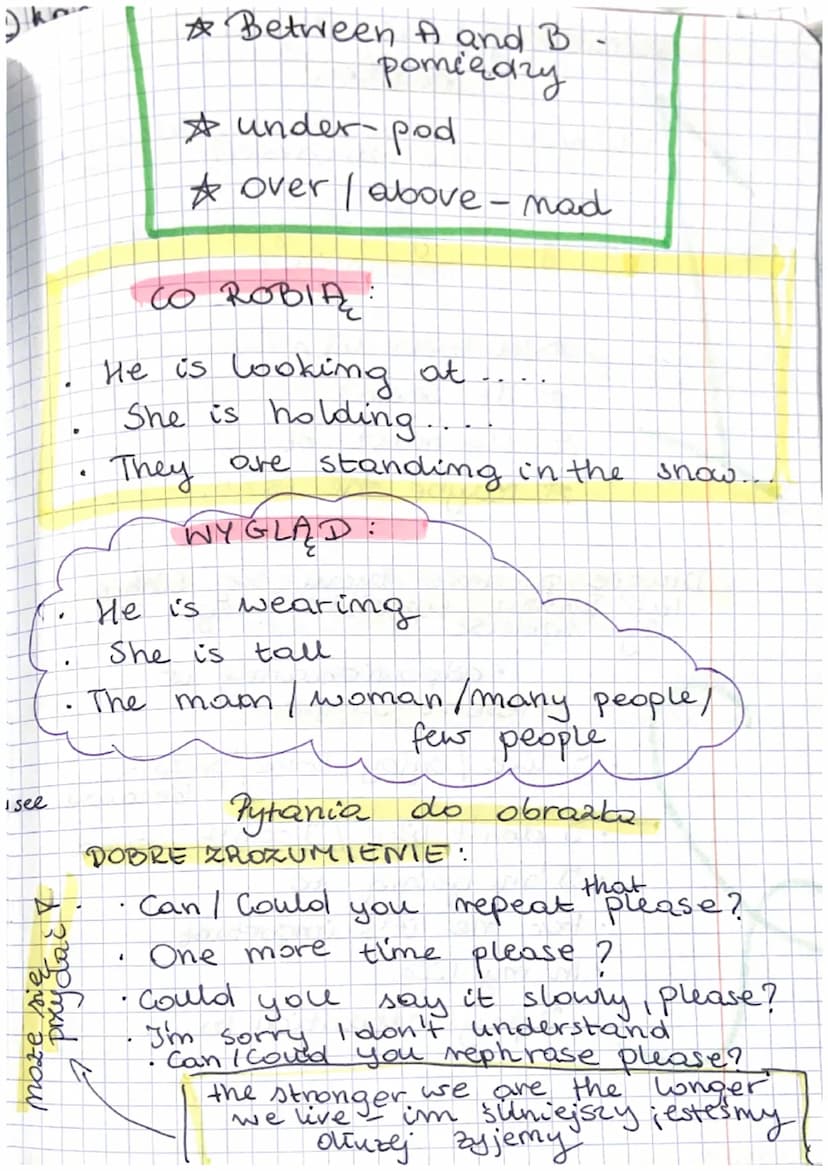 * Between A and B -
pomiędzy
* under - pod
* over / above - nad
CO ROBIĄ:
. He is looking at ....
. She is holding ....
. They are standing in the snow...
WYGLĄD:
. He is wearing
. She is tall
. The man / woman / many people /
few people
see
Pytania do obrazka
DOBRE ZROZUMIENIE:
. Can / Could you repeat that please?
. One more time please?
. Could you say it slowly, please?
. I'm sorry I don't understand
. Can / Could you rephrase please?
może się
przydać
the stronger we are the longer
we live - im silniejszy jesteśmy
dłużej żyjemy